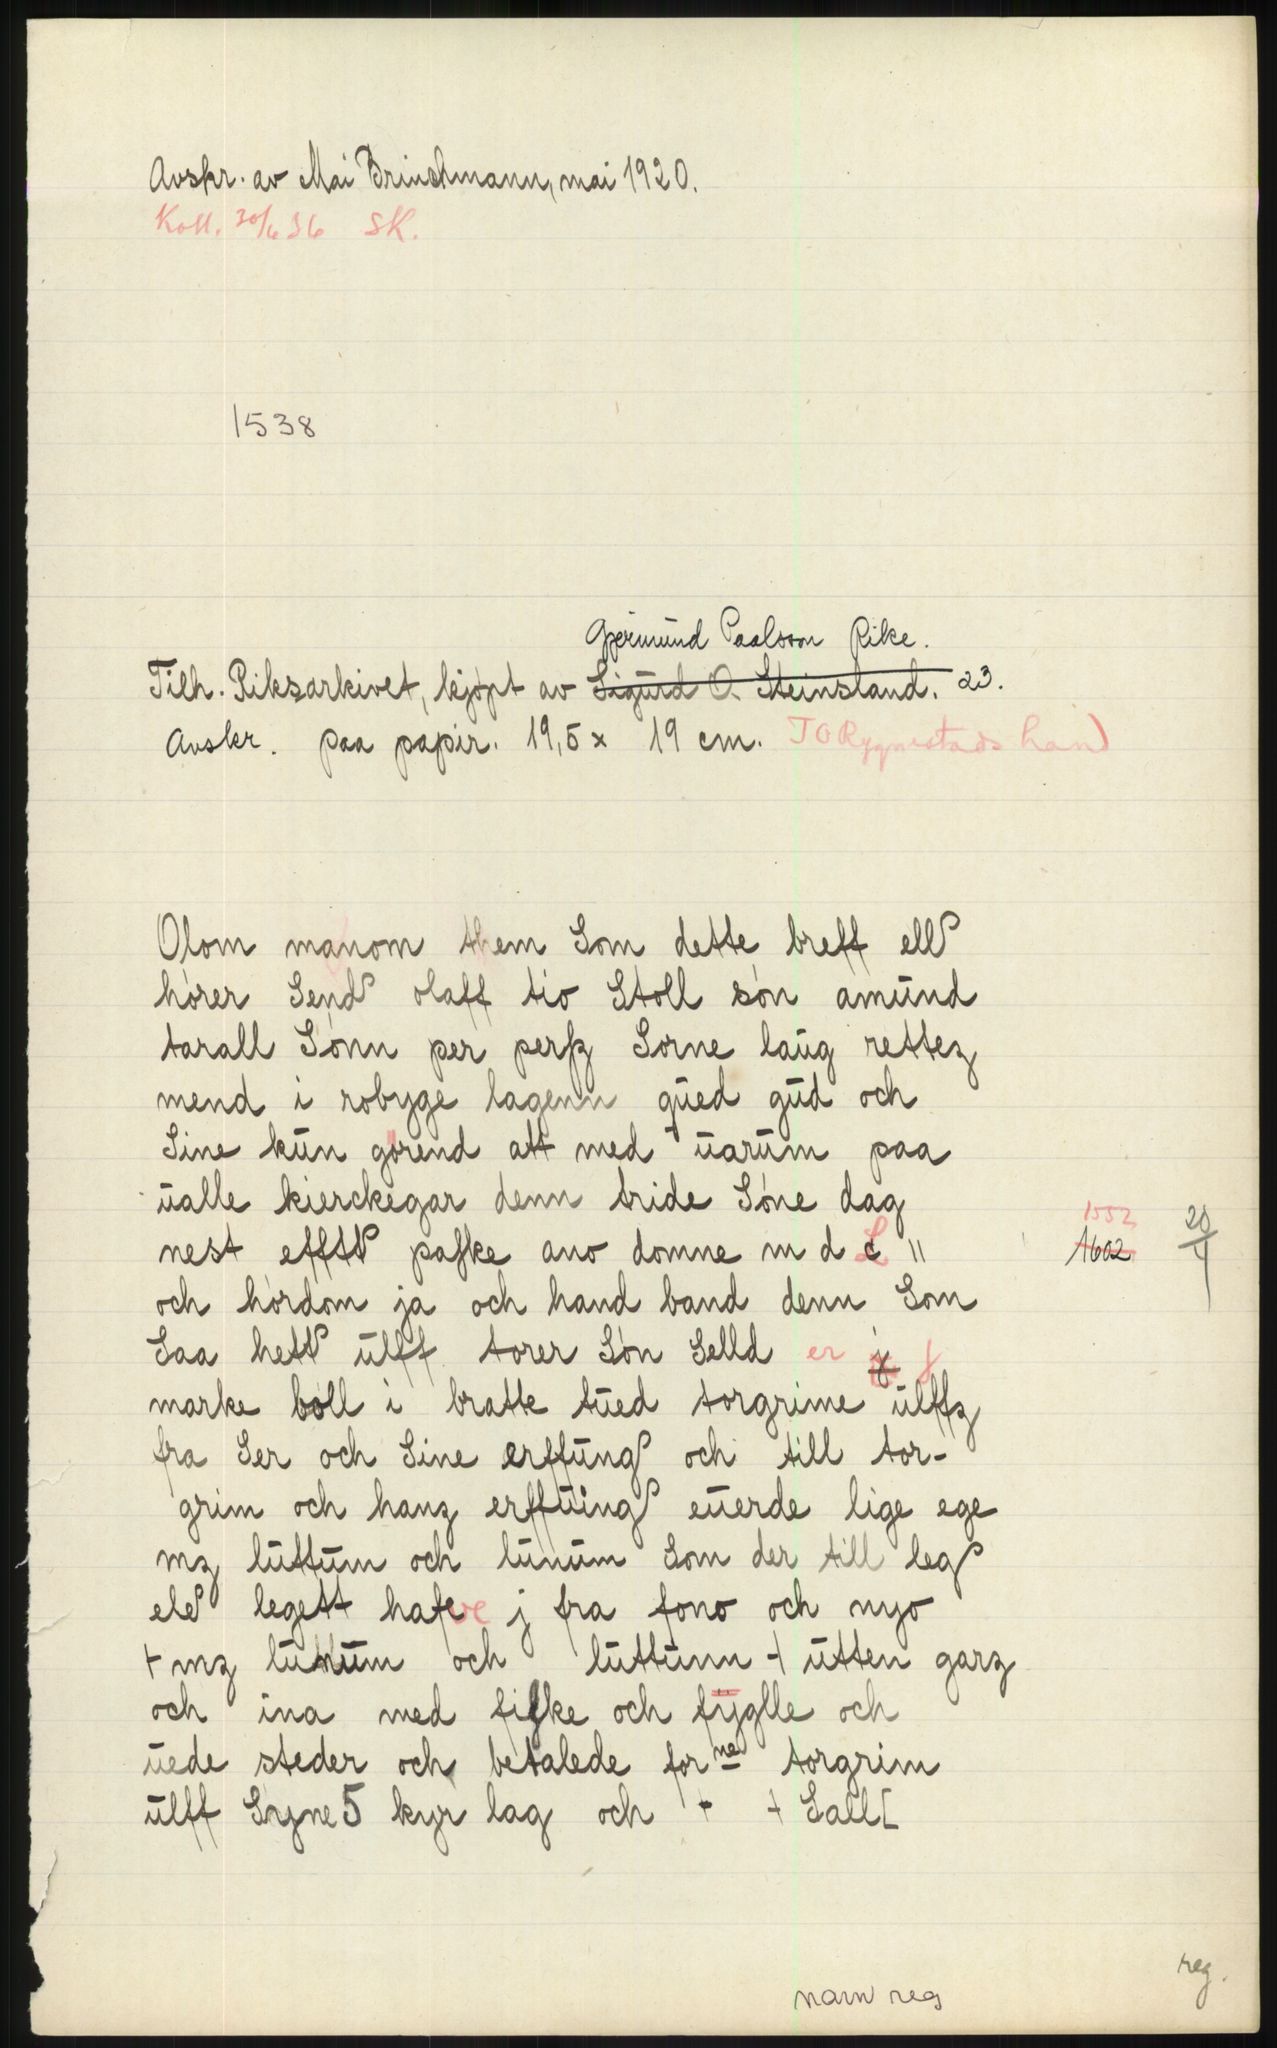 Avskr. av Mai Brinchmann, mai 1920.
Koll. 30/6 36 SK.
1538
Gjermund Paalsson Rike.
Tilh. Riksarkivet, kjøpt av Sigurd O. Steinsland. 23.
Avskr. paa papir. 19,5 x 19 cm. TO Rygnestads hand
Olom manom them Som dette breff ell
hører Send olaff tio Stoll søn amund
tarall Sønn per perſz Sorne laug rettez
mend i robygge lagenn qued gud och
Sine kun gørend att med uarum paa
ualle kierckegar denn tride Søne dag
nest efft paſke ano domne m d L "
1552
1602
20/4
och hørdom ja och hand band denn Som
Saa hett ulff torer Søn Selld er j
marke boll i bratte tued torgrime ulffz
fra Ser och Sine erffung och till tor-
grim och hanz erffuing euerde lige ege
mz luttum och lunum Som der till leg
ele legett hafve j fra fono och nyo
+ mz lunum och luttunn + utten garz
och ina med fiſke och fyglle och
uede steder och betalede for ne torgrim
ulff Syne 5 kyr lag och + + Sall[
reg.
navn reg